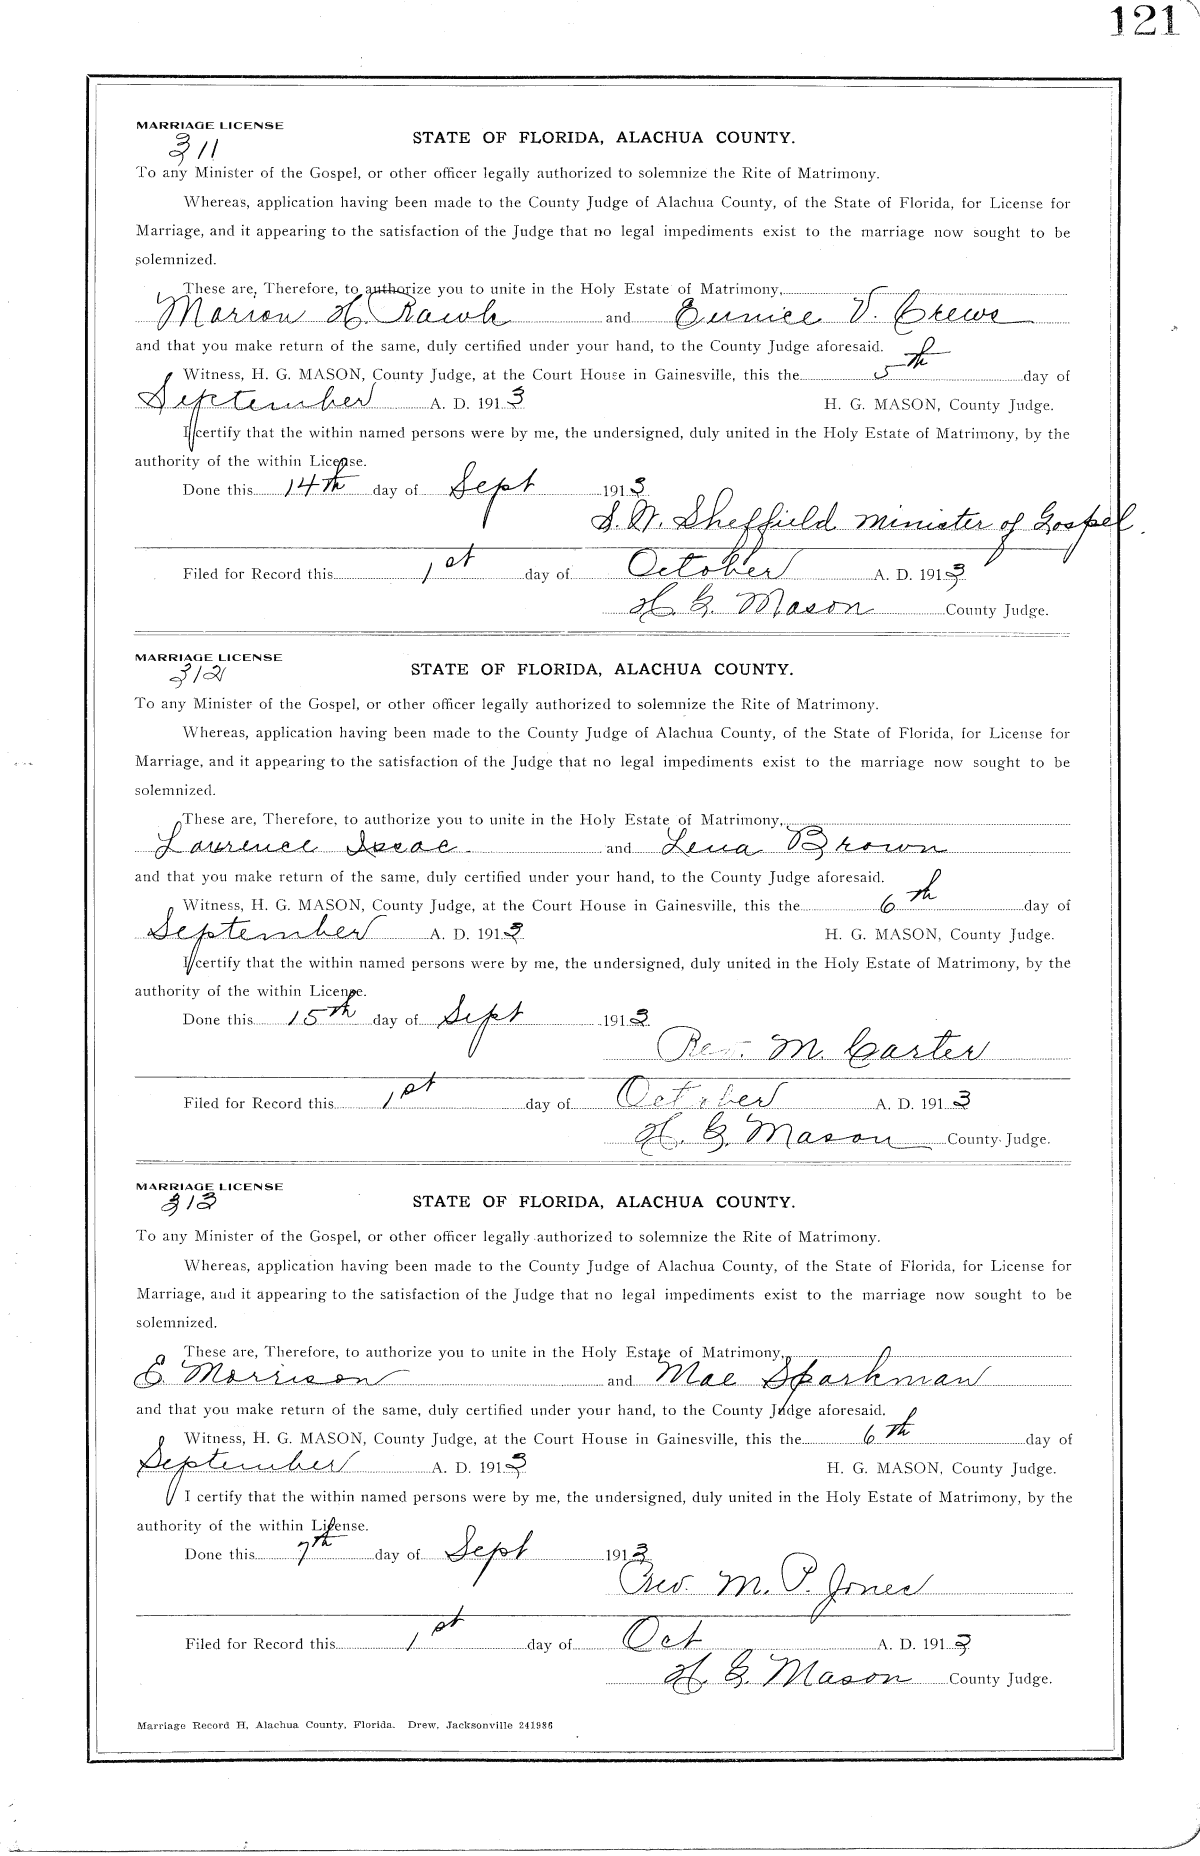 121
MARRIAGE LICENSE
311
STATE OF FLORIDA, ALACHUA COUNTY.
To any Minister of the Gospel, or other officer legally authorized to solemnize the Rite of Matrimony.
Whereas, application having been made to the County Judge of Alachua County, of the State of Florida, for License for
Marriage, and it appearing to the satisfaction of the Judge that no legal impediments exist to the marriage now sought to be
solemnized.
These are, Therefore, to authorize you to unite in the Holy Estate of Matrimony,
Marion H. Rawls and Eunice V. Crews
and that you make return of the same, duly certified under your hand, to the County Judge aforesaid.
Witness, H. G. MASON, County Judge, at the Court House in Gainesville, this the 5th day of
September A. D. 1913 H. G. MASON, County Judge.
I certify that the within named persons were by me, the undersigned, duly united in the Holy Estate of Matrimony, by the
authority of the within License.
Done this 14th day of Sept 1913
S. W. Sheffield minister of Gospel.
Filed for Record this 1st day of October A. D. 1913
H. G. Mason County Judge.
MARRIAGE LICENSE
312
STATE OF FLORIDA, ALACHUA COUNTY.
To any Minister of the Gospel, or other officer legally authorized to solemnize the Rite of Matrimony.
Whereas, application having been made to the County Judge of Alachua County, of the State of Florida, for License for
Marriage, and it appearing to the satisfaction of the Judge that no legal impediments exist to the marriage now sought to be
solemnized.
These are, Therefore, to authorize you to unite in the Holy Estate of Matrimony,
Lawrence Isaac. and Lena Brown
and that you make return of the same, duly certified under your hand, to the County Judge aforesaid.
Witness, H. G. MASON, County Judge, at the Court House in Gainesville, this the 6th day of
September A. D. 1913 H. G. MASON, County Judge.
I certify that the within named persons were by me, the undersigned, duly united in the Holy Estate of Matrimony, by the
authority of the within License.
Done this 15th day of Sept 1913
Rev. M. Carter
Filed for Record this 1st day of October A. D. 1913
H. G. Mason County Judge.
MARRIAGE LICENSE
313
STATE OF FLORIDA, ALACHUA COUNTY.
To any Minister of the Gospel, or other officer legally authorized to solemnize the Rite of Matrimony.
Whereas, application having been made to the County Judge of Alachua County, of the State of Florida, for License for
Marriage, and it appearing to the satisfaction of the Judge that no legal impediments exist to the marriage now sought to be
solemnized.
These are, Therefore, to authorize you to unite in the Holy Estate of Matrimony,
E Morrison and Mae Sparkman
and that you make return of the same, duly certified under your hand, to the County Judge aforesaid.
Witness, H. G. MASON, County Judge, at the Court House in Gainesville, this the 6th day of
September A. D. 1913 H. G. MASON, County Judge.
I certify that the within named persons were by me, the undersigned, duly united in the Holy Estate of Matrimony, by the
authority of the within License.
Done this 7th day of Sept 1913
Rev. M. P. Jones
Filed for Record this 1st day of Oct A. D. 1913
H. G. Mason County Judge.
Marriage Record H, Alachua County, Florida. Drew, Jacksonville 241986